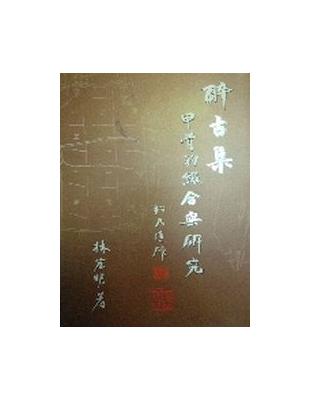 醉古集
甲骨的綴合與研究
林宏明著